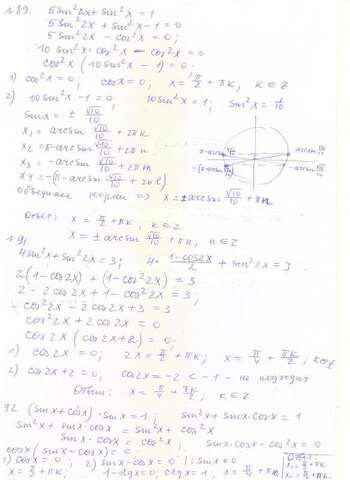 №189. 5sin²2x + sin²x = 1
5sin²2x + sin²x - 1 = 0
5sin²2x - cos²x = 0;
10sin²x·cos²x - cos²x = 0
cos²x (10sin²x - 1) = 0.
1) cos²x = 0; cosx = 0; x = π/2 + πk, k ∈ Z
2) 10sin²x - 1 = 0; 10sin²x = 1; sin²x = 1/10
sinx = ± √10/10
x₁ = arcsin √10/10 + 2πk
x₂ = π - arcsin √10/10 + 2πn
x₃ = -arcsin √10/10 + 2πm
x₄ = -(π - arcsin √10/10 + 2πl)
Объединяем корни => x = ± arcsin √10/10 + πn
Ответ: x = π/2 + πk, k ∈ Z
x = ± arcsin √10/10 + πn, n ∈ Z
№191
4sin²x + sin²2x = 3; 4· (1-cos2x)/2 + sin²2x = 3
2(1-cos2x) + (1-cos²2x) = 3
2 - 2cos2x + 1 - cos²2x = 3;
-cos²2x - 2cos2x + 3 = 3
cos²2x + 2cos2x = 0
cos2x (cos2x + 2) = 0.
1) cos2x = 0; 2x = π/2 + πk; x = π/4 + πk/2, k ∈ Z
2) cos2x + 2 = 0; cos2x = -2 < -1 - не подходит
Ответ: x = π/4 + πk/2, k ∈ Z
92 (sinx + cosx)·sinx = 1; sin²x + sinx·cosx = 1
sin²x + sinx·cosx = sin²x + cos²x
sinx·cosx = cos²x; sinx·cosx - cos²x = 0
cosx (sinx - cosx) = 0.
1) cosx = 0; 2) sinx - cosx = 0 |: sinx ≠ 0
x = π/2 + πk; 1 - ctgx = 0; ctgx = 1, x = π/4 + πn
Ответ: